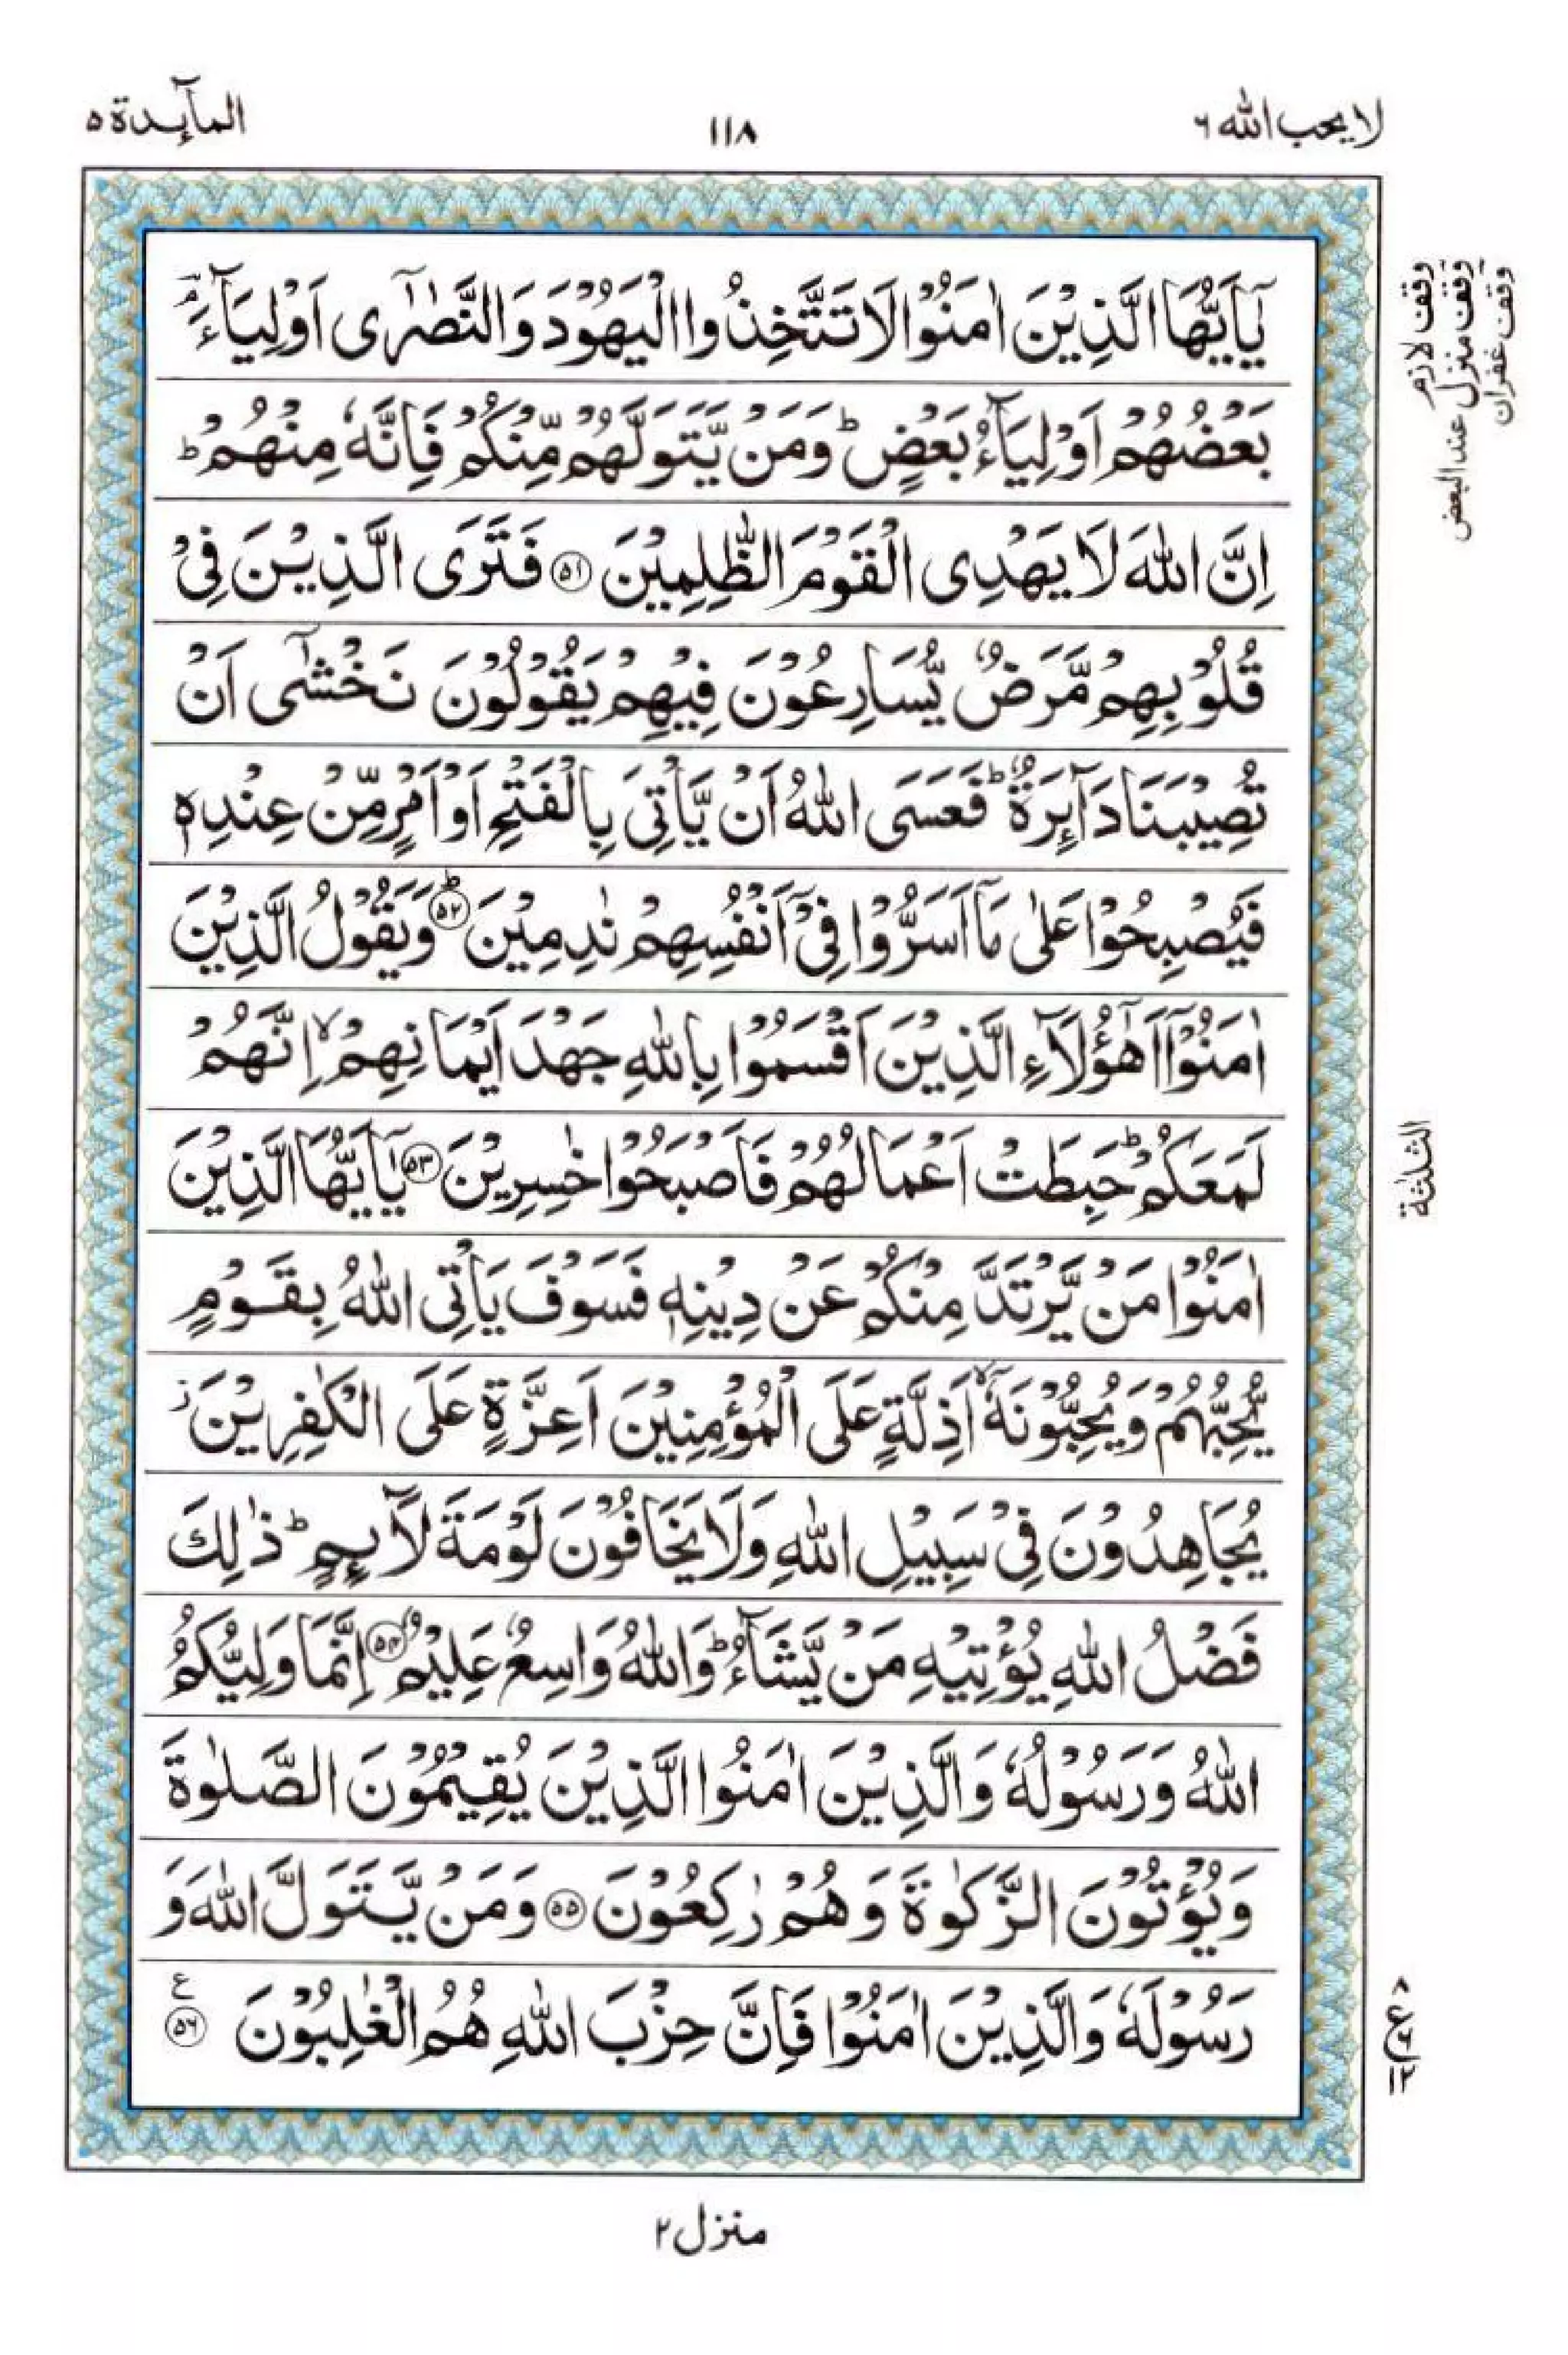 لا يحب الله ٦
١١٨
المآىِٕدة ٥
يٰۤاَيُّهَا الَّذِيْنَ اٰمَنُوْا لَا تَتَّخِذُوا الْيَهُوْدَ وَالنَّصٰرٰۤى اَوْلِيَآءَ ۘ
بَعْضُهُمْ اَوْلِيَآءُ بَعْضٍ ؕ وَمَنْ يَّتَوَلَّهُمْ مِّنْكُمْ فَاِنَّهٗ مِنْهُمْ ؕ
اِنَّ اللّٰهَ لَا يَهْدِى الْقَوْمَ الظّٰلِمِيْنَ ٥١ فَتَرَى الَّذِيْنَ فِىْ
قُلُوْبِهِمْ مَّرَضٌ يُّسَارِعُوْنَ فِيْهِمْ يَقُوْلُوْنَ نَخْشٰۤى اَنْ
تُصِيْبَنَا دَآىِٕرَةٌ ؕ فَعَسَى اللّٰهُ اَنْ يَّاْتِىَ بِالْفَتْحِ اَوْ اَمْرٍ مِّنْ عِنْدِهٖ
فَيُصْبِحُوْا عَلٰى مَاۤ اَسَرُّوْا فِىْۤ اَنْفُسِهِمْ نٰدِمِيْنَ ؕ ٥٢ وَيَقُوْلُ الَّذِيْنَ
اٰمَنُوْۤا اَهٰۤؤُلَآءِ الَّذِيْنَ اَقْسَمُوْا بِاللّٰهِ جَهْدَ اَيْمَانِهِمْ ۙ اِنَّهُمْ
لَمَعَكُمْ ؕ حَبِطَتْ اَعْمَالُهُمْ فَاَصْبَحُوْا خٰسِرِيْنَ ٥٣ يٰۤاَيُّهَا الَّذِيْنَ
اٰمَنُوْا مَنْ يَّرْتَدَّ مِنْكُمْ عَنْ دِيْنِهٖ فَسَوْفَ يَاْتِى اللّٰهُ بِقَوْمٍ
يُّحِبُّهُمْ وَيُحِبُّوْنَهٗۤ ۙ اَذِلَّةٍ عَلَى الْمُؤْمِنِيْنَ اَعِزَّةٍ عَلَى الْكٰفِرِيْنَ ؗ
يُجَاهِدُوْنَ فِىْ سَبِيْلِ اللّٰهِ وَلَا يَخَافُوْنَ لَوْمَةَ لَآىِٕمٍ ؕ ذٰلِكَ
فَضْلُ اللّٰهِ يُؤْتِيْهِ مَنْ يَّشَآءُ ؕ وَاللّٰهُ وَاسِعٌ عَلِيْمٌ ٥٤ اِنَّمَا وَلِيُّكُمُ
اللّٰهُ وَرَسُوْلُهٗ وَالَّذِيْنَ اٰمَنُوا الَّذِيْنَ يُقِيْمُوْنَ الصَّلٰوةَ
وَيُؤْتُوْنَ الزَّكٰوةَ وَهُمْ رٰكِعُوْنَ ٥٥ وَمَنْ يَّتَوَلَّ اللّٰهَ وَ
رَسُوْلَهٗ وَالَّذِيْنَ اٰمَنُوْا فَاِنَّ حِزْبَ اللّٰهِ هُمُ الْغٰلِبُوْنَ ٥٦ ع
وقف لازم
وقف منزل عند البعض
وقف غفران
الثلٰثة
٨
ع ٦
١٢
منزل ٢